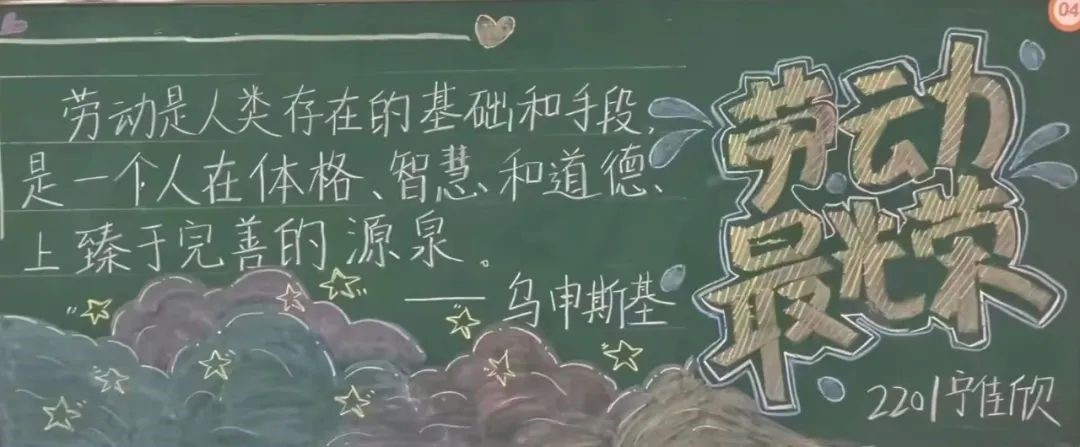 劳动是人类存在的基础和手段,
是一个人在体格、智慧、和道德、
上臻于完善的源泉。
——乌申斯基
劳动
最光荣
2201宁佳欣
04